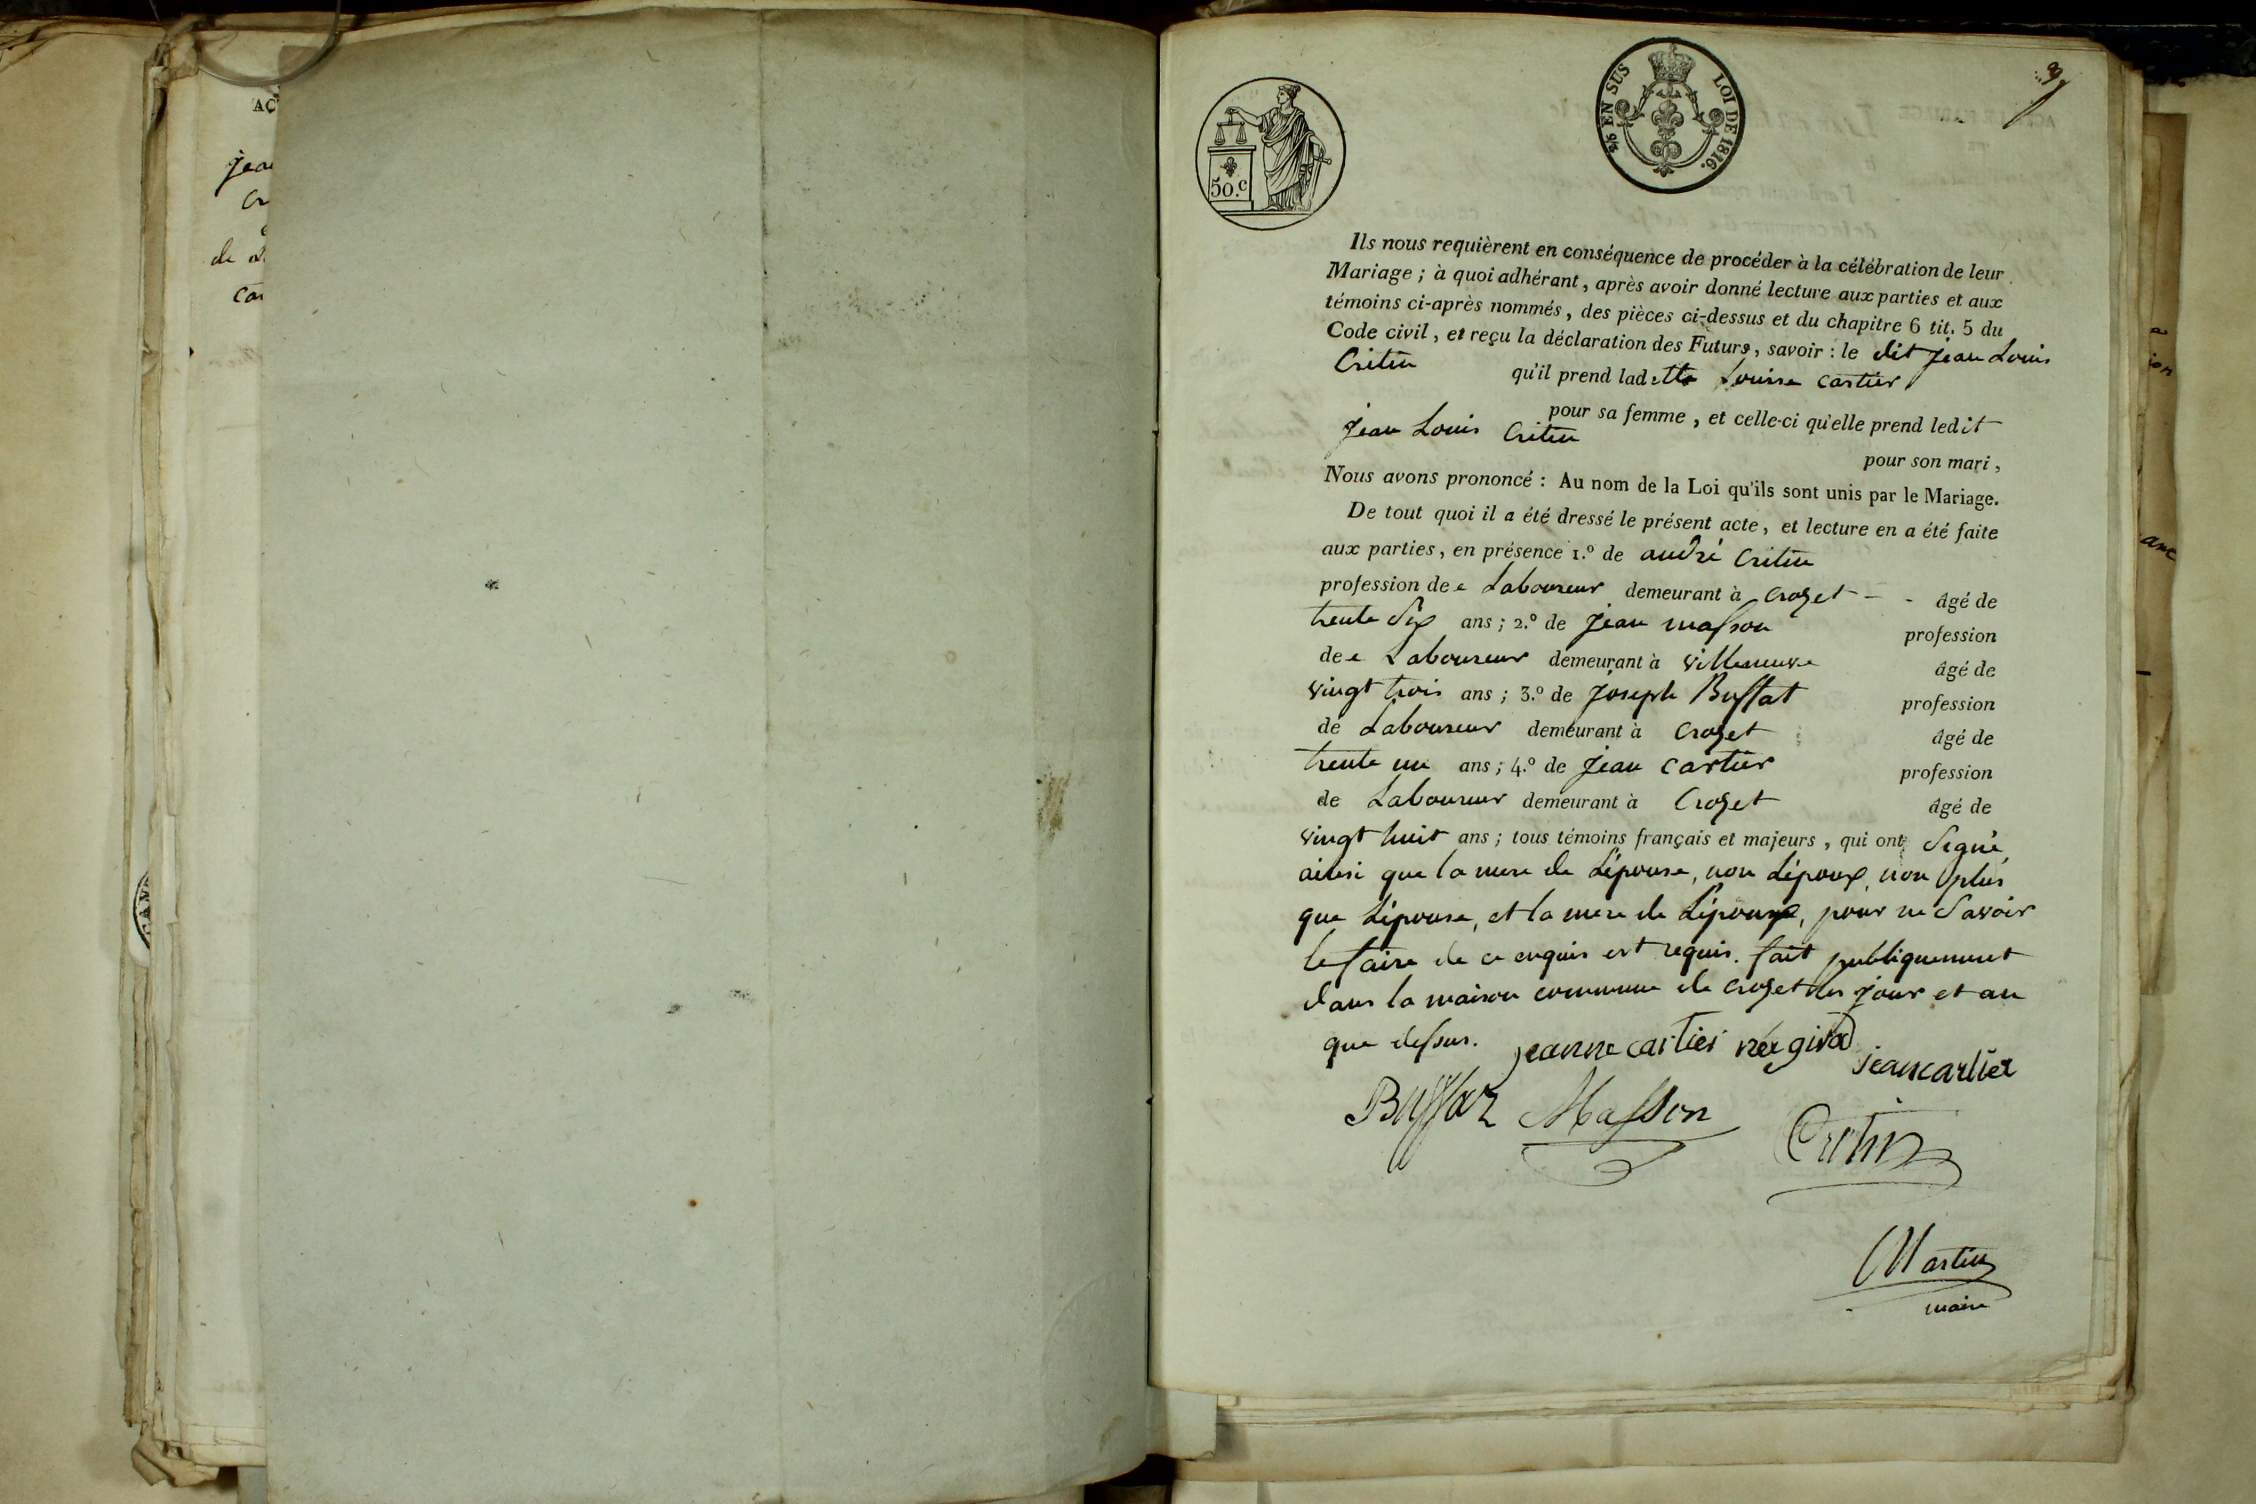 AC
jea
cr
de
car
50.c
EN SUS LOI DE 1816.
Ils nous requièrent en conséquence de procéder à la célébration de leur
Mariage ; à quoi adhérant, après avoir donné lecture aux parties et aux
témoins ci-après nommés, des pièces ci-dessus et du chapitre 6 tit. 5 du
Code civil, et reçu la déclaration des Futurs, savoir : le dit jean Louis
Critin qu'il prend ladette Louise cartier
pour sa femme, et celle-ci qu'elle prend ledit
jean Louis Critin
pour son mari,
Nous avons prononcé : Au nom de la Loi qu'ils sont unis par le Mariage.
De tout quoi il a été dressé le présent acte, et lecture en a été faite
aux parties, en présence 1.º de andré Critin
profession de e Laboureur demeurant à crozet - - âgé de
trente Six ans ; 2.º de jean masson profession
de e Laboureur demeurant à villeneuve âgé de
vingt trois ans ; 3.º de joseph Buffat profession
de Laboureur demeurant à crozet âgé de
trente un ans ; 4.º de jean cartier profession
de Laboureur demeurant à Crozet âgé de
vingt huit ans ; tous témoins français et majeurs, qui ont Signé
ainsi que la mere de L'épouse, non L'époux, non plus
que L'épouse, et la mere de L'époux, pour ne Savoir
le faire de ce enquis et requis. fait publiquement
dans la maison commune de crozet les jour et an
que dessus. jeanne cartier née girod
jean cartier
Buffaz Masson
Critin
Martin
maire